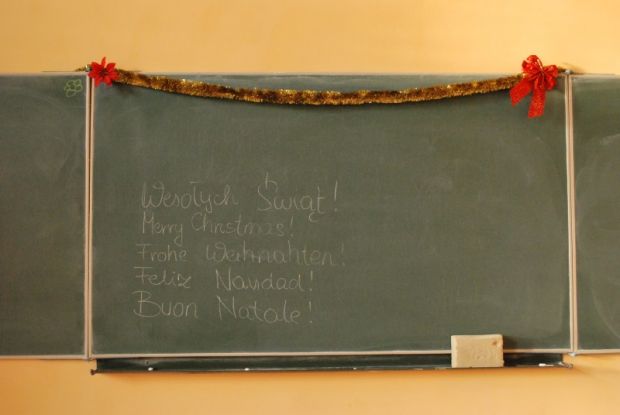 Wesołych Świąt!
Merry Christmas!
Frohe Weihnahten!
Feliz Navidad!
Buon Natale!